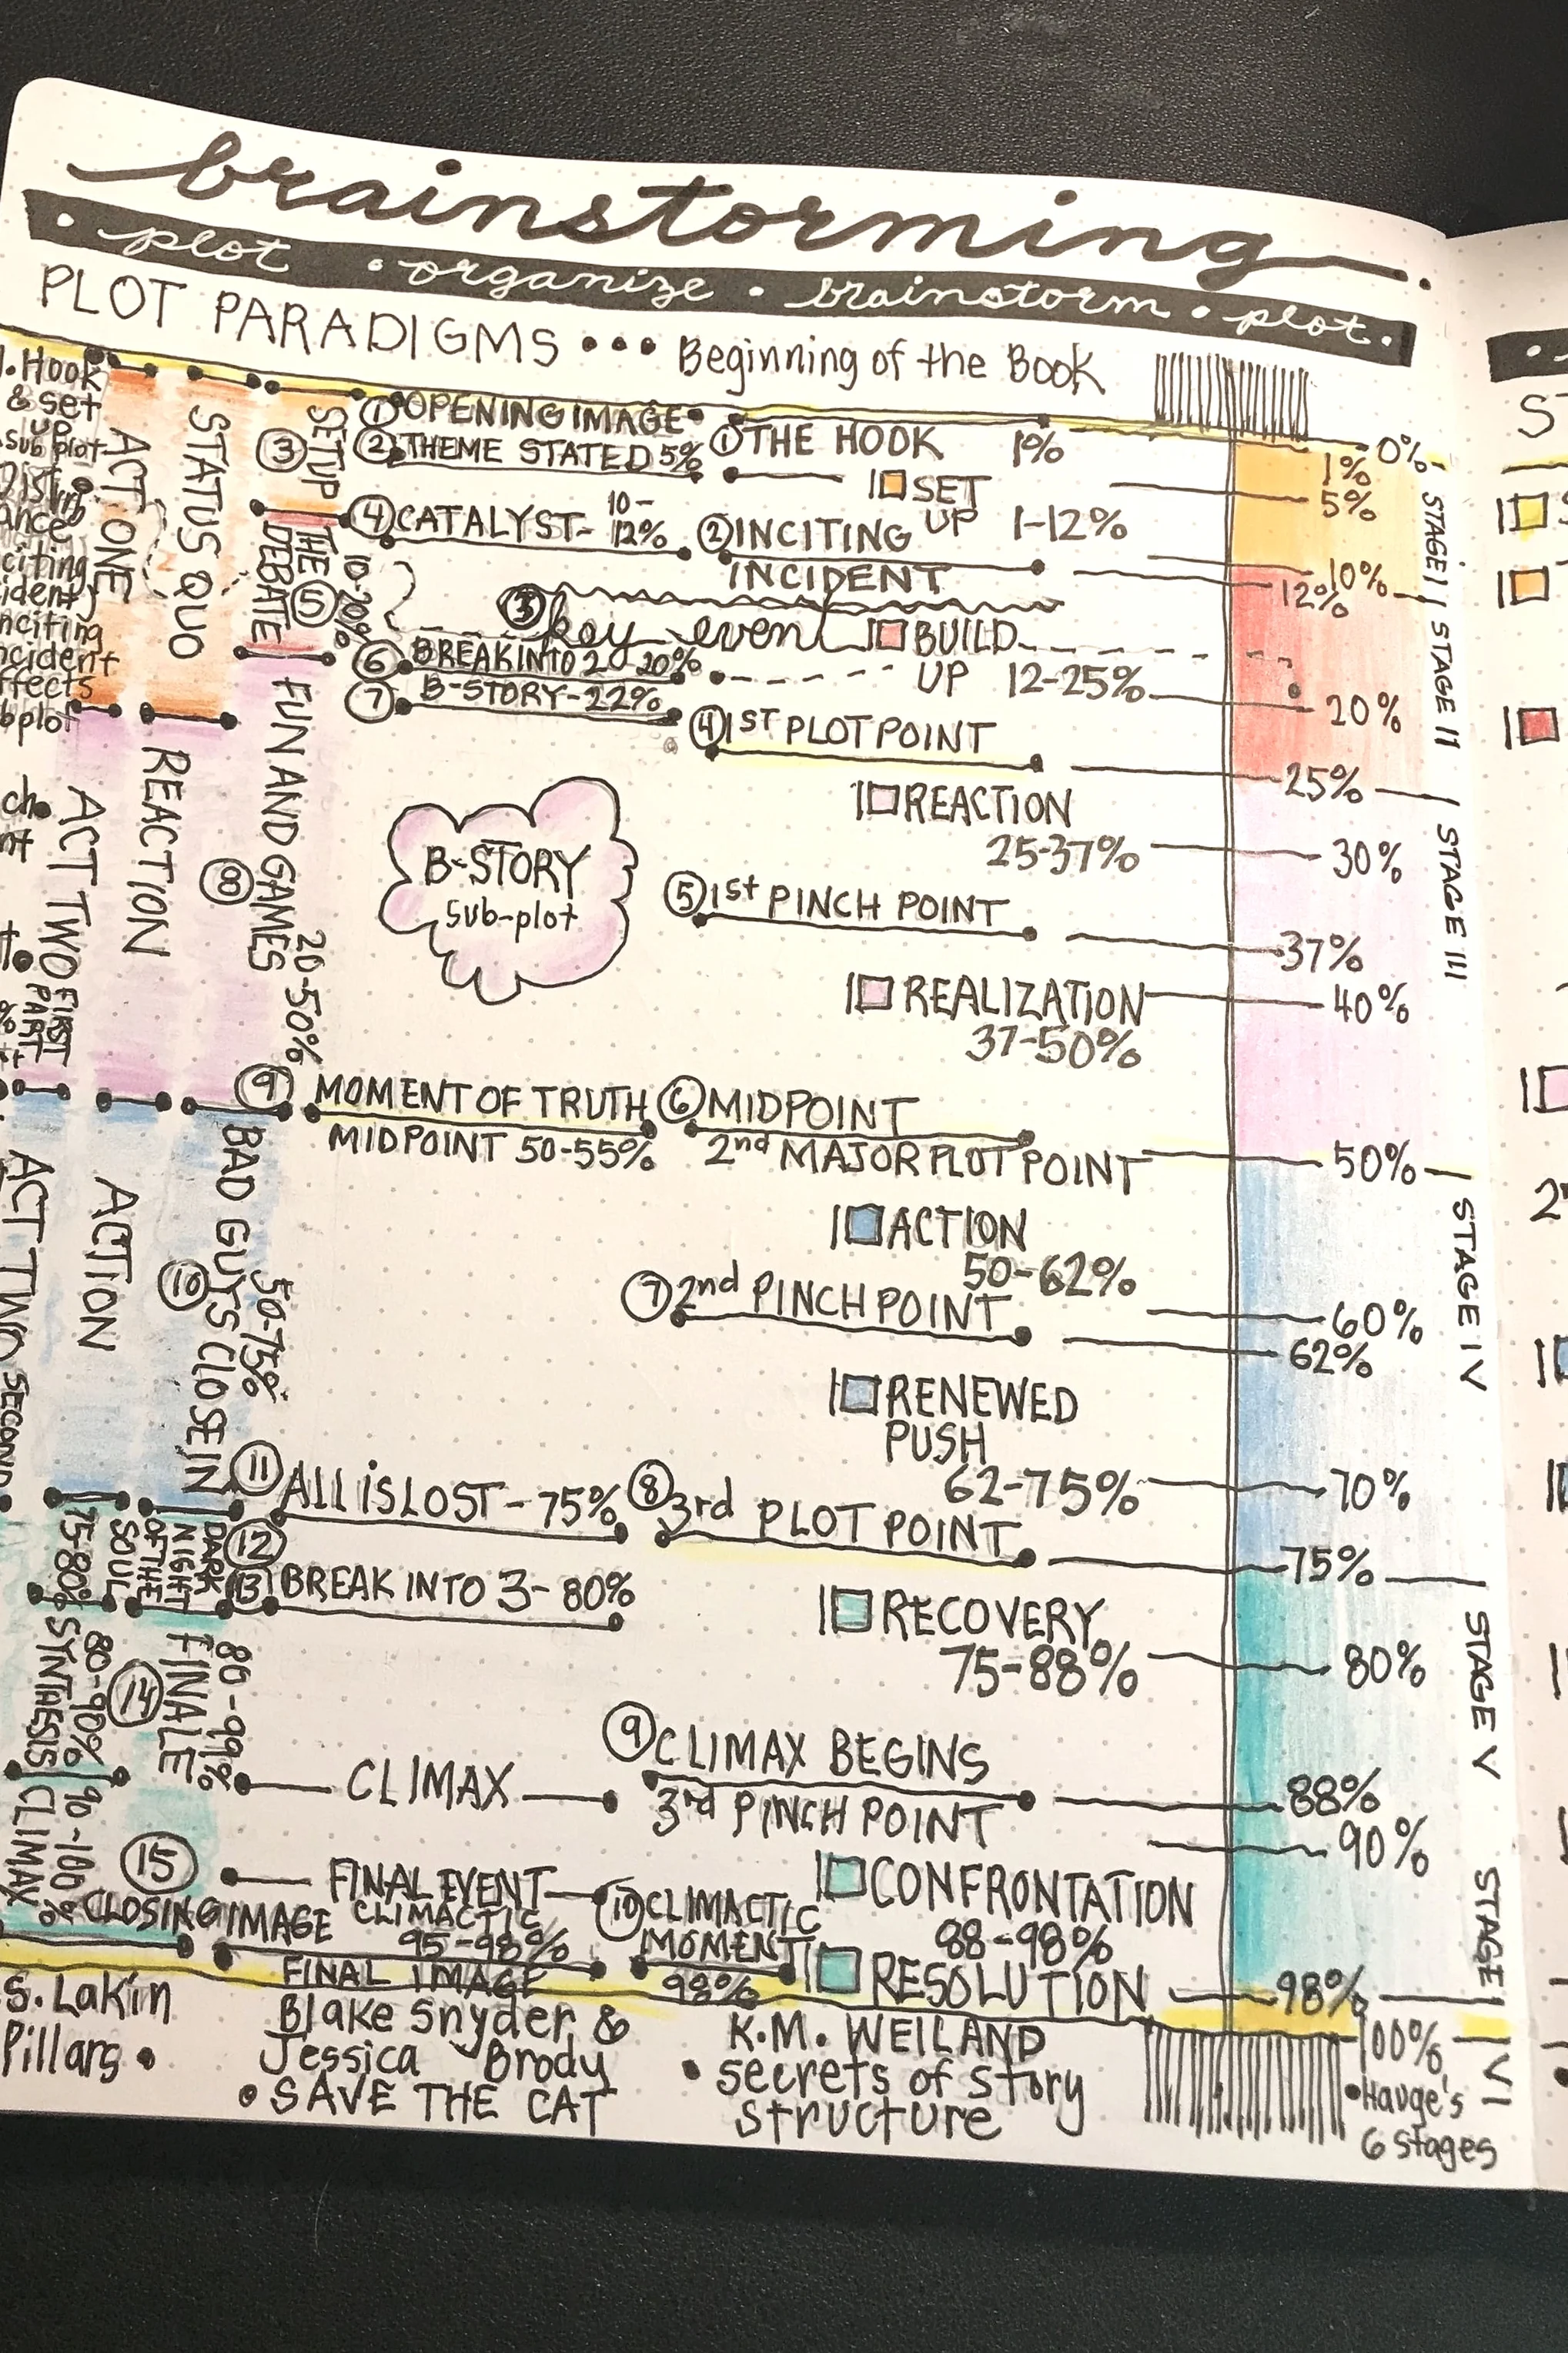 brainstorming
• plot • organize • brainstorm • plot •
PLOT PARADIGMS ••• Beginning of the Book
1. Hook
& set
up
sub plot
ACT ONE
STATUS QUO
③ SETUP
① OPENING IMAGE
② THEME STATED 5%
① THE HOOK 1%
SET
UP 1-12%
④ CATALYST- 10-
12%
② INCITING
INCIDENT
THE
DEBATE
⑤ 10-20%
③ key event
BUILD
UP 12-25%
⑥ BREAK INTO 2 20%
⑦ B-STORY-22%
④ 1ST PLOT POINT
ACT TWO FIRST
PART
REACTION
⑧ FUN AND GAMES
20-50%
B-STORY
sub-plot
REACTION
25-37%
⑤ 1st PINCH POINT
REALIZATION
37-50%
⑨ MOMENT OF TRUTH
MIDPOINT 50-55%
⑥ MIDPOINT
2nd MAJOR PLOT POINT
ACT TWO SECOND
ACTION
⑩ BAD GUYS CLOSE IN
50-75%
ACTION
50-62%
⑦ 2nd PINCH POINT
RENEWED
PUSH
62-75%
⑪ ALL IS LOST-75%
⑧ 3rd PLOT POINT
⑫ DARK
NIGHT
OF THE
SOUL
75-80%
⑬ BREAK INTO 3-80%
RECOVERY
75-88%
⑭ FINALE
80-99%
SYNTHESIS
80-90%
CLIMAX
90-100%
CLIMAX
⑨ CLIMAX BEGINS
3rd PINCH POINT
⑮ CLOSING IMAGE
FINAL EVENT
CLIMACTIC
95-98%
FINAL IMAGE
⑩ CLIMACTIC
MOMENT
98%
CONFRONTATION
88-98%
RESOLUTION
0%
1%
5%
10%
12%
20%
25%
30%
37%
40%
50%
60%
62%
70%
75%
80%
88%
90%
98%
100%
STAGE I
STAGE II
STAGE III
STAGE IV
STAGE V
STAGE
VI
S. Lakin
Pillars •
Blake Snyder &
Jessica Brody
• SAVE THE CAT
K.M. WEILAND
• secrets of story
structure
• Hauge's
6 stages